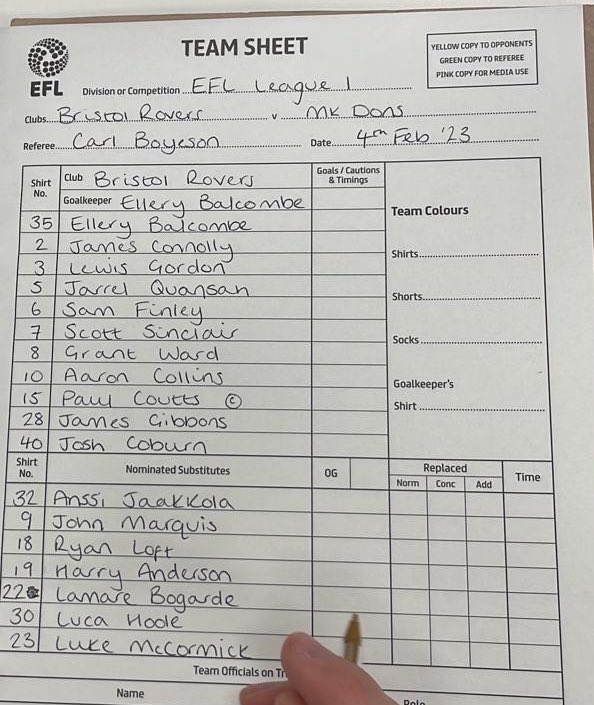 TEAM SHEET
YELLOW COPY TO OPPONENTS
GREEN COPY TO REFEREE
PINK COPY FOR MEDIA USE
EFL
Division or Competition EFL League 1
Clubs Bristol Rovers v MK Dons
Referee Carl Boyeson Date 4th Feb '23
Shirt No. Club Bristol Rovers Goals / Cautions & Timings
Goalkeeper Ellery Balcombe
Team Colours
35 Ellery Balcombe
2 James Connolly
3 Lewis Gordon
Shirts
5 Jarrel Quansah
6 Sam Finley
Shorts
7 Scott Sinclair
Socks
8 Grant Ward
10 Aaron Collins
Goalkeeper's
Shirt
15 Paul Coutts ©
28 James Gibbons
40 Josh Coburn
Shirt No. Nominated Substitutes OG Replaced Time
Norm Conc Add
32 Anssi Jaakkola
9 John Marquis
18 Ryan Loft
19 Harry Anderson
22 Lamare Bogarde
30 Luca Hoole
23 Luke McCormick
Team Officials on
Name